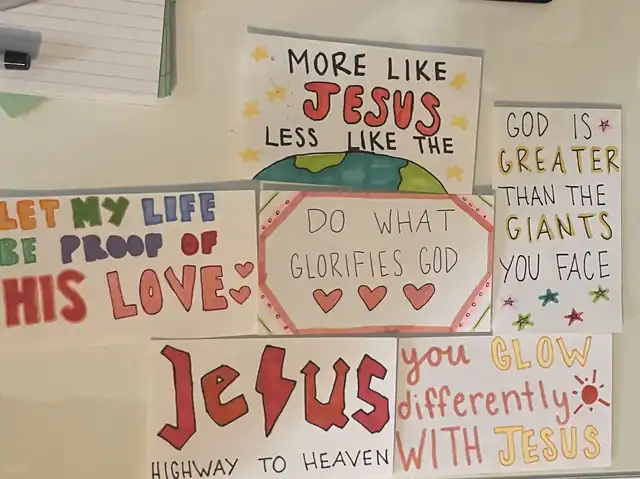 MORE LIKE
JESUS
LESS LIKE THE
GOD IS
GREATER
THAN THE
GIANTS
YOU FACE
LET MY LIFE
BE PROOF OF
HIS LOVE
DO WHAT
GLORIFIES GOD
JeSus
HIGHWAY TO HEAVEN
you GLOW
differently
WITH JESUS